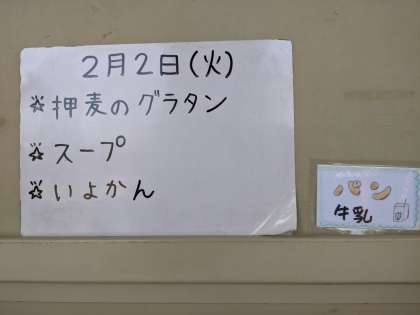 2月2日(火)
☆押麦のグラタン
☆スープ
☆いよかん
パン
牛乳